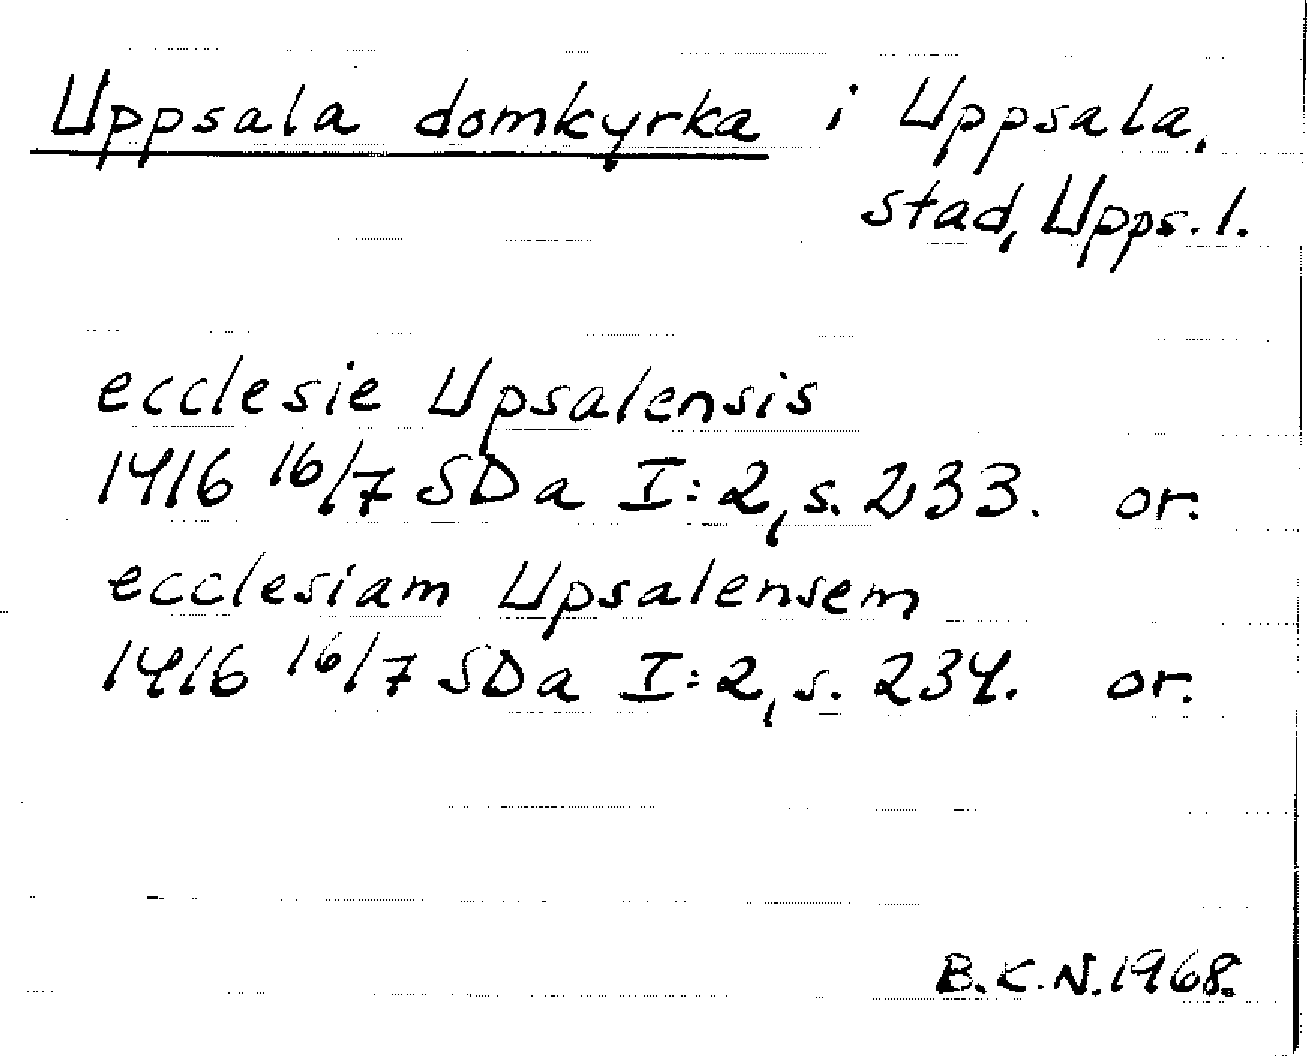 Uppsala domkyrka i Uppsala,
stad, Upps. l.
ecclesie Upsalensis
1416 16/7 SDa I:2, s. 233. or.
ecclesiam Upsalensem
1416 16/7 SDa I:2, s. 234. or.
B.K.N. 1968.